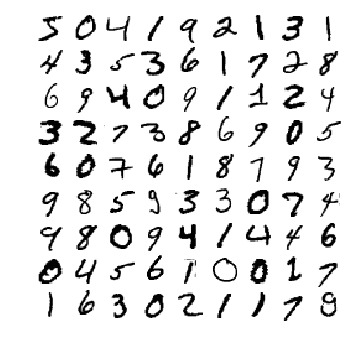 5 0 4 1 9 2 1 3 1
4 3 5 3 6 1 7 2 8
6 9 4 0 9 1 1 2 4
3 2 7 3 8 6 9 0 5
6 0 7 6 1 8 7 9 3
9 8 5 9 3 3 0 7 4
9 8 0 9 4 1 4 4 6
0 4 5 6 1 0 0 1 7
1 6 3 0 2 1 1 7 9